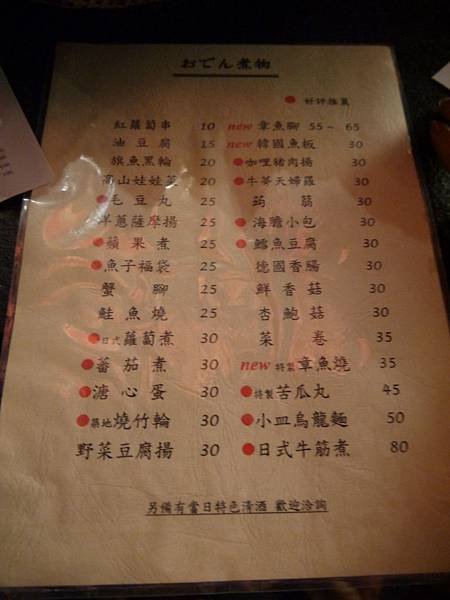 おでん煮物
● 好評推薦
紅蘿蔔串 10
油豆腐 15
旗魚黑輪 20
高山娃娃菜 20
●毛豆丸 25
洋蔥薩摩揚 25
●蘋果煮 25
●魚子福袋 25
蟹腳 25
鮭魚燒 25
●日式蘿蔔煮 30
●蕃茄煮 30
●溏心蛋 30
●築地燒竹輪 30
野菜豆腐揚 30
new 章魚腳 55~65
new 韓國魚板 30
●咖哩豬肉揚 30
●牛蒡天婦羅 30
蒟蒻 30
●海膽小包 30
●鱈魚豆腐 30
德國香腸 30
鮮香菇 30
杏鮑菇 30
菜卷 35
new 特製章魚燒 35
●特製苦瓜丸 45
●小皿烏龍麵 50
●日式牛筋煮 80
另備有當日特色清酒 歡迎洽詢